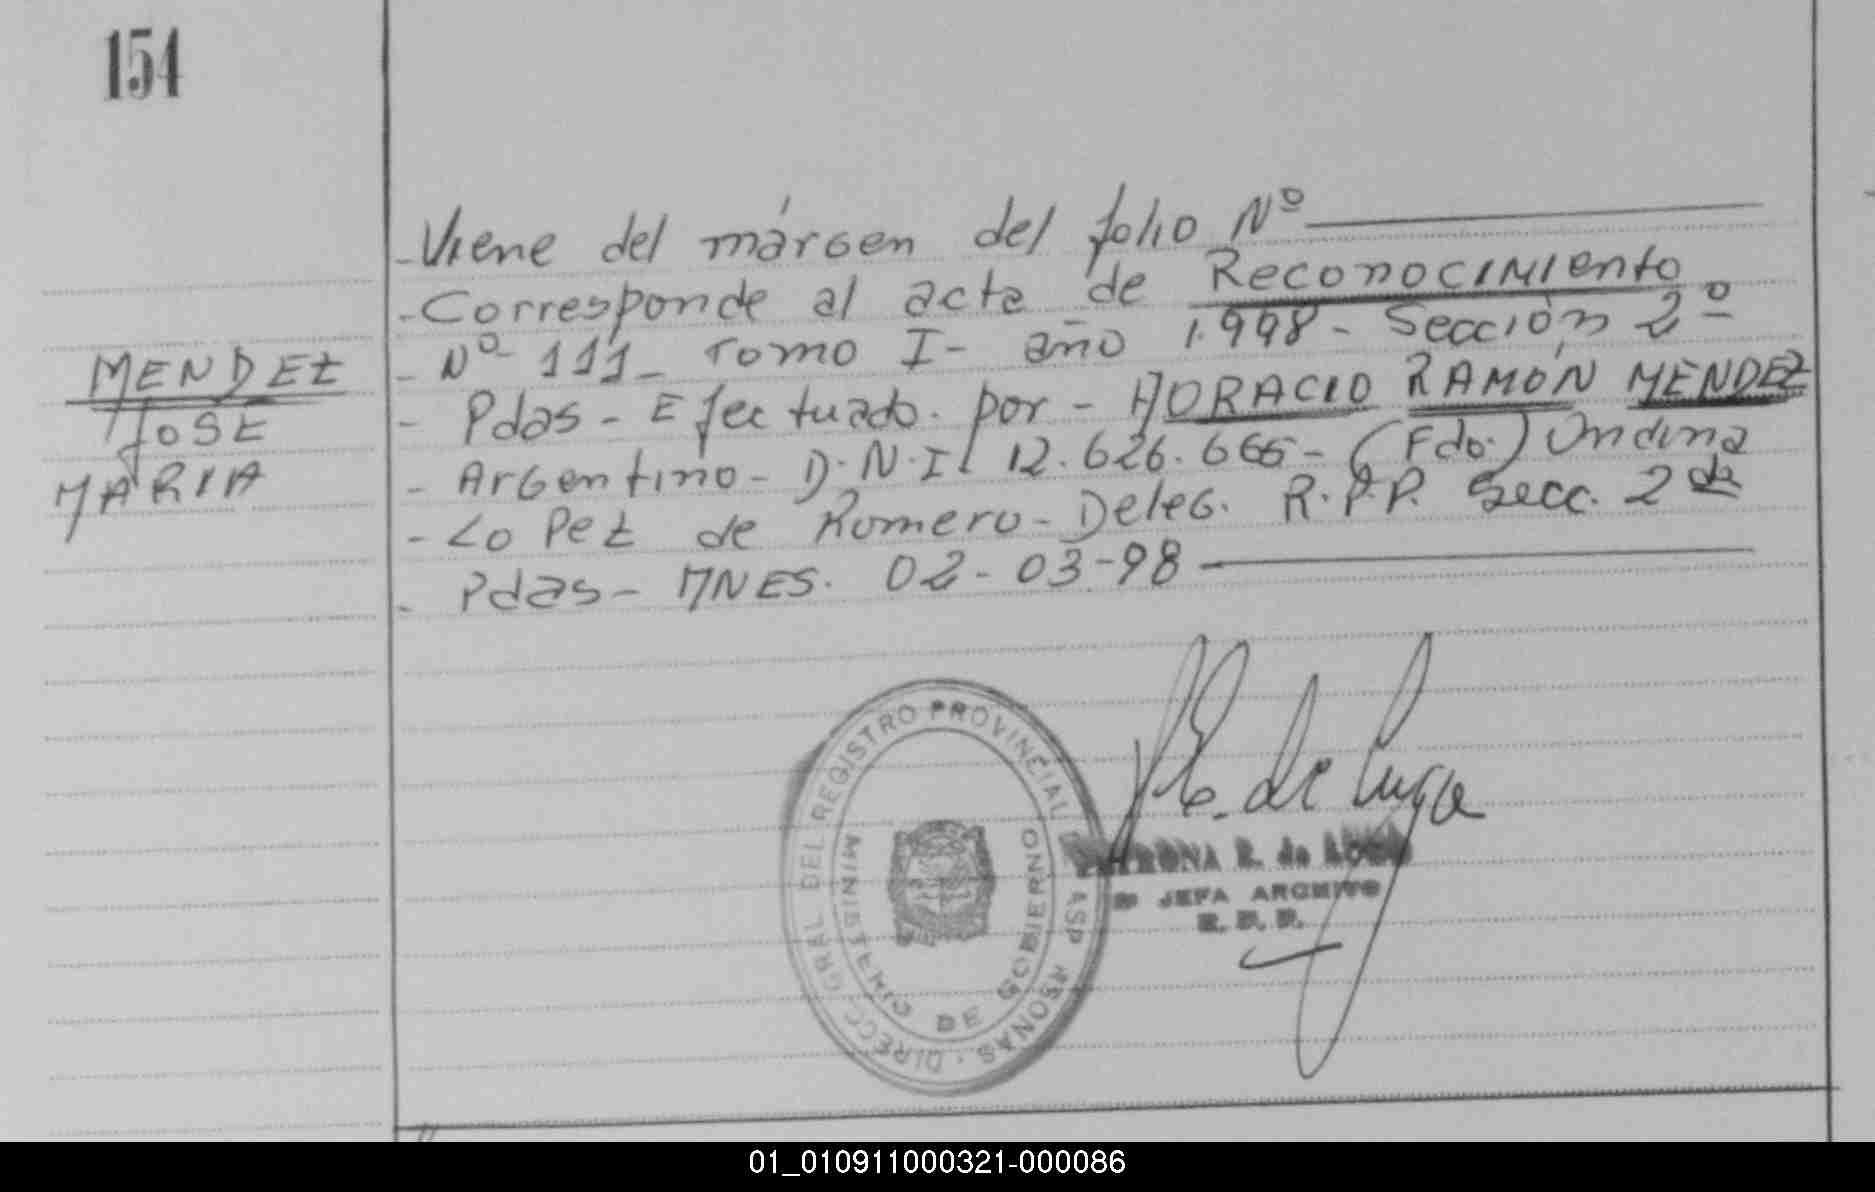 154
MENDEZ
JOSE
MARIA
- Viene del márgen del folio Nº
- Corresponde al acta de Reconocimiento
- Nº 111 - Tomo I - año 1.998 - Sección 2º
- Pdas - Efectuado. por - HORACIO RAMÓN MENDEZ
- Argentino - D.N.I. 12.626.666 - (Fdo.) Ondina
- Lopez de Romero - Deleg. R.P.P. Secc. 2da
- Pdas - MNES. 02-03-98
DIRECC GRAL DEL REGISTRO PROVINCIAL PERSONAS
MINISTERIO DE GOBIERNO
R. de Lugo
R. de LUGO
JEFA ARCHIVO
R.P.P.
01_010911000321-000086